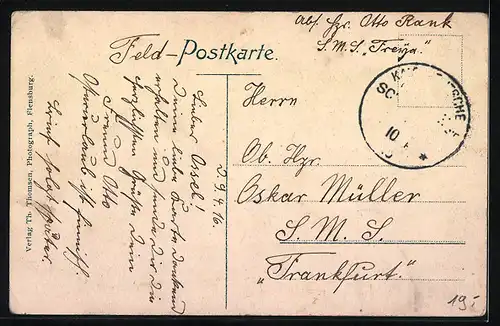 Abs. Hzr. Otto Rank
S.M.S. „Freya."
Feld-Postkarte.
D. 9.4.16.
Lieber Ossel!
Deine liebe Karte dankend
erhalten und sende Dir die
herzlichsten Grüße Dein
Freund Otto
Osterurlaub ist
Brief folgt später.
Herrn
Ob. Hzr.
Oskar Müller
S. M. S.
„Frankfurt."
10
Verlag Th. Thomsen, Photograph, Flensburg.
19.-